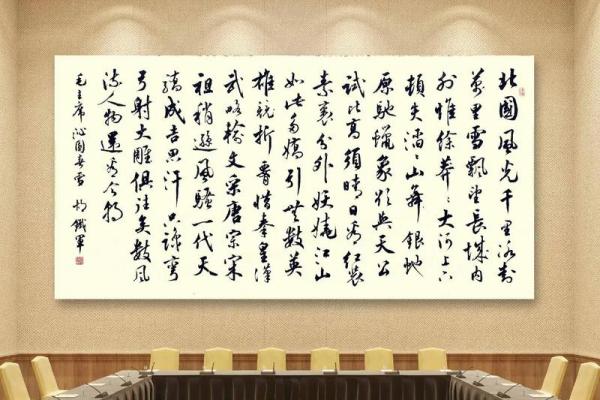 北國風光千里冰封
萬里雪飄望長城內
外惟餘莽々大河上下
頓失滔々山舞銀蛇
原馳蠟象欲與天公
試比高須晴日看紅裝
素裹分外妖嬈江山
如此多嬌引無數英
雄競折腰惜秦皇漢
武略輸文采唐宗宋
祖稍遜風騷一代天
驕成吉思汗只識彎
弓射大雕俱往矣數風
流人物還看今朝
毛主席沁園春雪 楊鐵軍